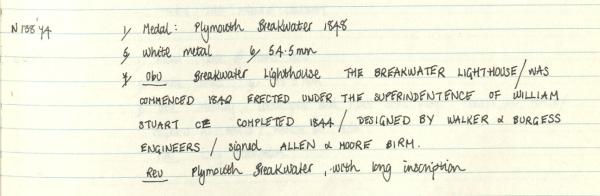 N138'74 1/ Medal: Plymouth Breakwater 1848
5/ White metal 6/ 54.5mm
7/ Obv Breakwater Lighthouse THE BREAKWATER LIGHTHOUSE/WAS
COMMENCED 1842 ERECTED UNDER THE SUPERINTENDENCE OF WILLIAM
STUART CE COMPLETED 1844/ DESIGNED BY WALKER & BURGESS
ENGINEERS/ signed ALLEN & MOORE BIRM.
Rev Plymouth Breakwater, with long inscription